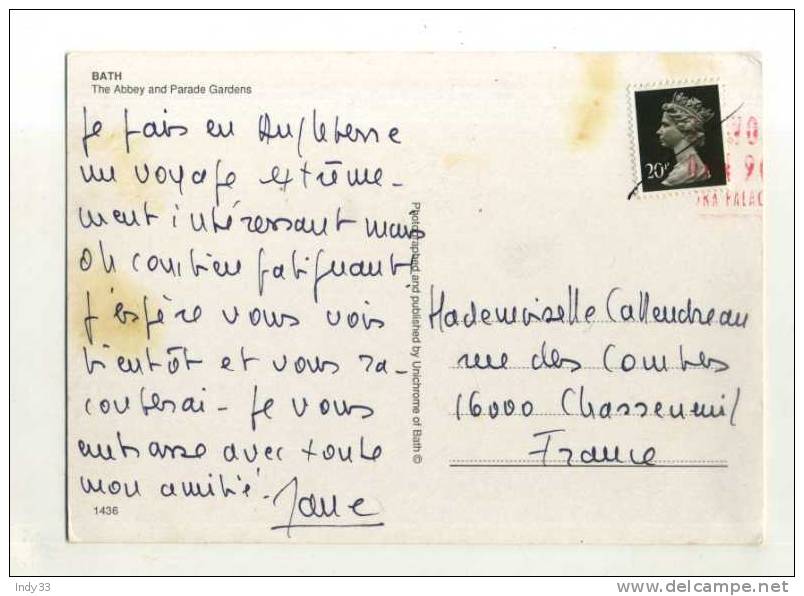 BATH
The Abbey and Parade Gardens
Je fais en Angleterre
un voyage extrême-
ment intéressant mais
oh combien fatiguant,
j'espère vous vois
bientôt et vous ra-
conterai - Je vous
embrasse avec toute
mon amitié.
Jane
1436
Photographed and published by Unichrome of Bath ©
20P
Mademoiselle Callendreau
rue des Combes
16000 Chasseneuil
France
Indy33
delcampe.net